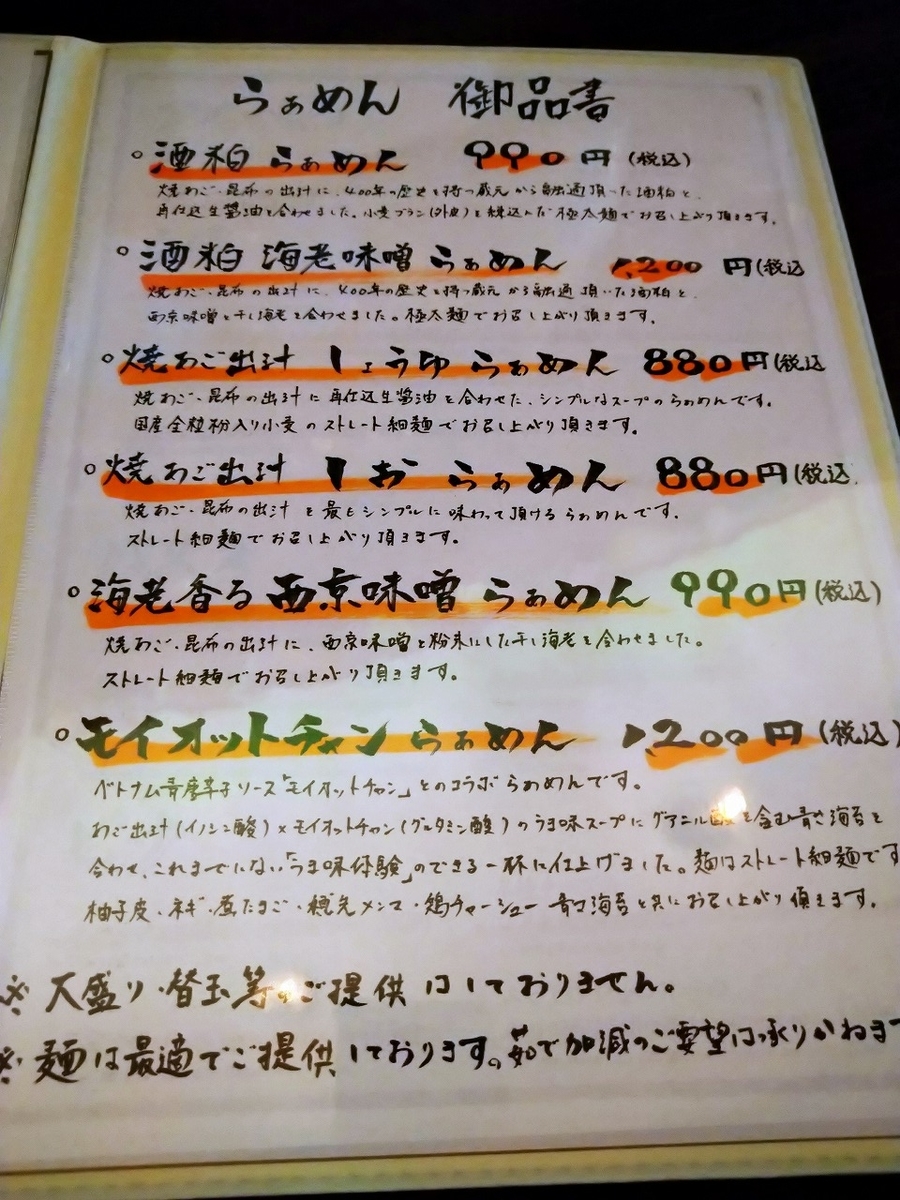 らぁめん 御品書
○酒粕 らぁめん 990円(税込)
焼あご・昆布の出汁に、400年の歴史を持つ蔵元から融通頂いた酒粕と、
再仕込生醤油を合わせました。小麦ブラン(外皮)を練込んだ極太麺でお召し上がり頂きます。
○酒粕 海老味噌 らぁめん 1,200円(税込
焼あご・昆布の出汁に、400年の歴史を持つ蔵元から融通頂いた酒粕と、
西京味噌と干し海老を合わせました。極太麺でお召し上がり頂きます。
○焼あご出汁 しょうゆ らぁめん 880円(税込
焼あご・昆布の出汁に再仕込生醤油を合わせた、シンプルなスープのらぁめんです。
国産全粒粉入り小麦のストレート細麺でお召し上がり頂きます。
○焼あご出汁 しお らぁめん 880円(税込
焼あご・昆布の出汁を最もシンプルに味わって頂けるらぁめんです。
ストレート細麺でお召し上がり頂きます。
○海老香る 西京味噌 らぁめん 990円(税込)
焼あご・昆布の出汁に、西京味噌と粉末にした干し海老を合わせました。
ストレート細麺でお召し上がり頂きます。
○モイオットチャン らぁめん 1,200円(税込)
ベトナム青唐辛子ソース「モイオットチャン」とのコラボらぁめんです。
あご出汁(イノシン酸)×モイオットチャン(グルタミン酸)のうま味スープにグアニル酸を含む青さ海苔を
合わせ、これまでにない「うま味体験」のできる一杯に仕上げました。麺はストレート細麺です
柚子皮・ネギ・煮たまご・穂先メンマ・鶏チャーシュー 青さ海苔と共にお召し上がり頂きます。
※大盛り・替玉等のご提供はしておりません。
※麺は最適でご提供しております。茹で加減のご要望は承りかねます